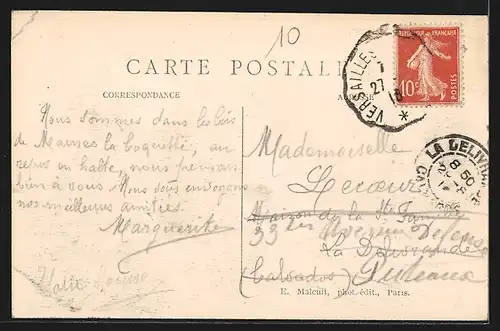 10
CARTE POSTALE
CORRESPONDANCE
VERSAILLES
27
10
*
REPUBLIQUE FRANÇAISE
10c
POSTES
LA DELIVRANDE
8 50
CALVADOS
Nous sommes dans les bois
de Marnes la Coquette, au
repos en halte, nous pensons
bien à vous. Nous vous envoyons
nos meilleures amitiés.
Marguerite
Mademoiselle
Lecœur
Maison de la Ste Famille
33 Avenue Défense
La Délivrande
(Calvados) Puteaux
E. Malcuit, phot.-édit., Paris.